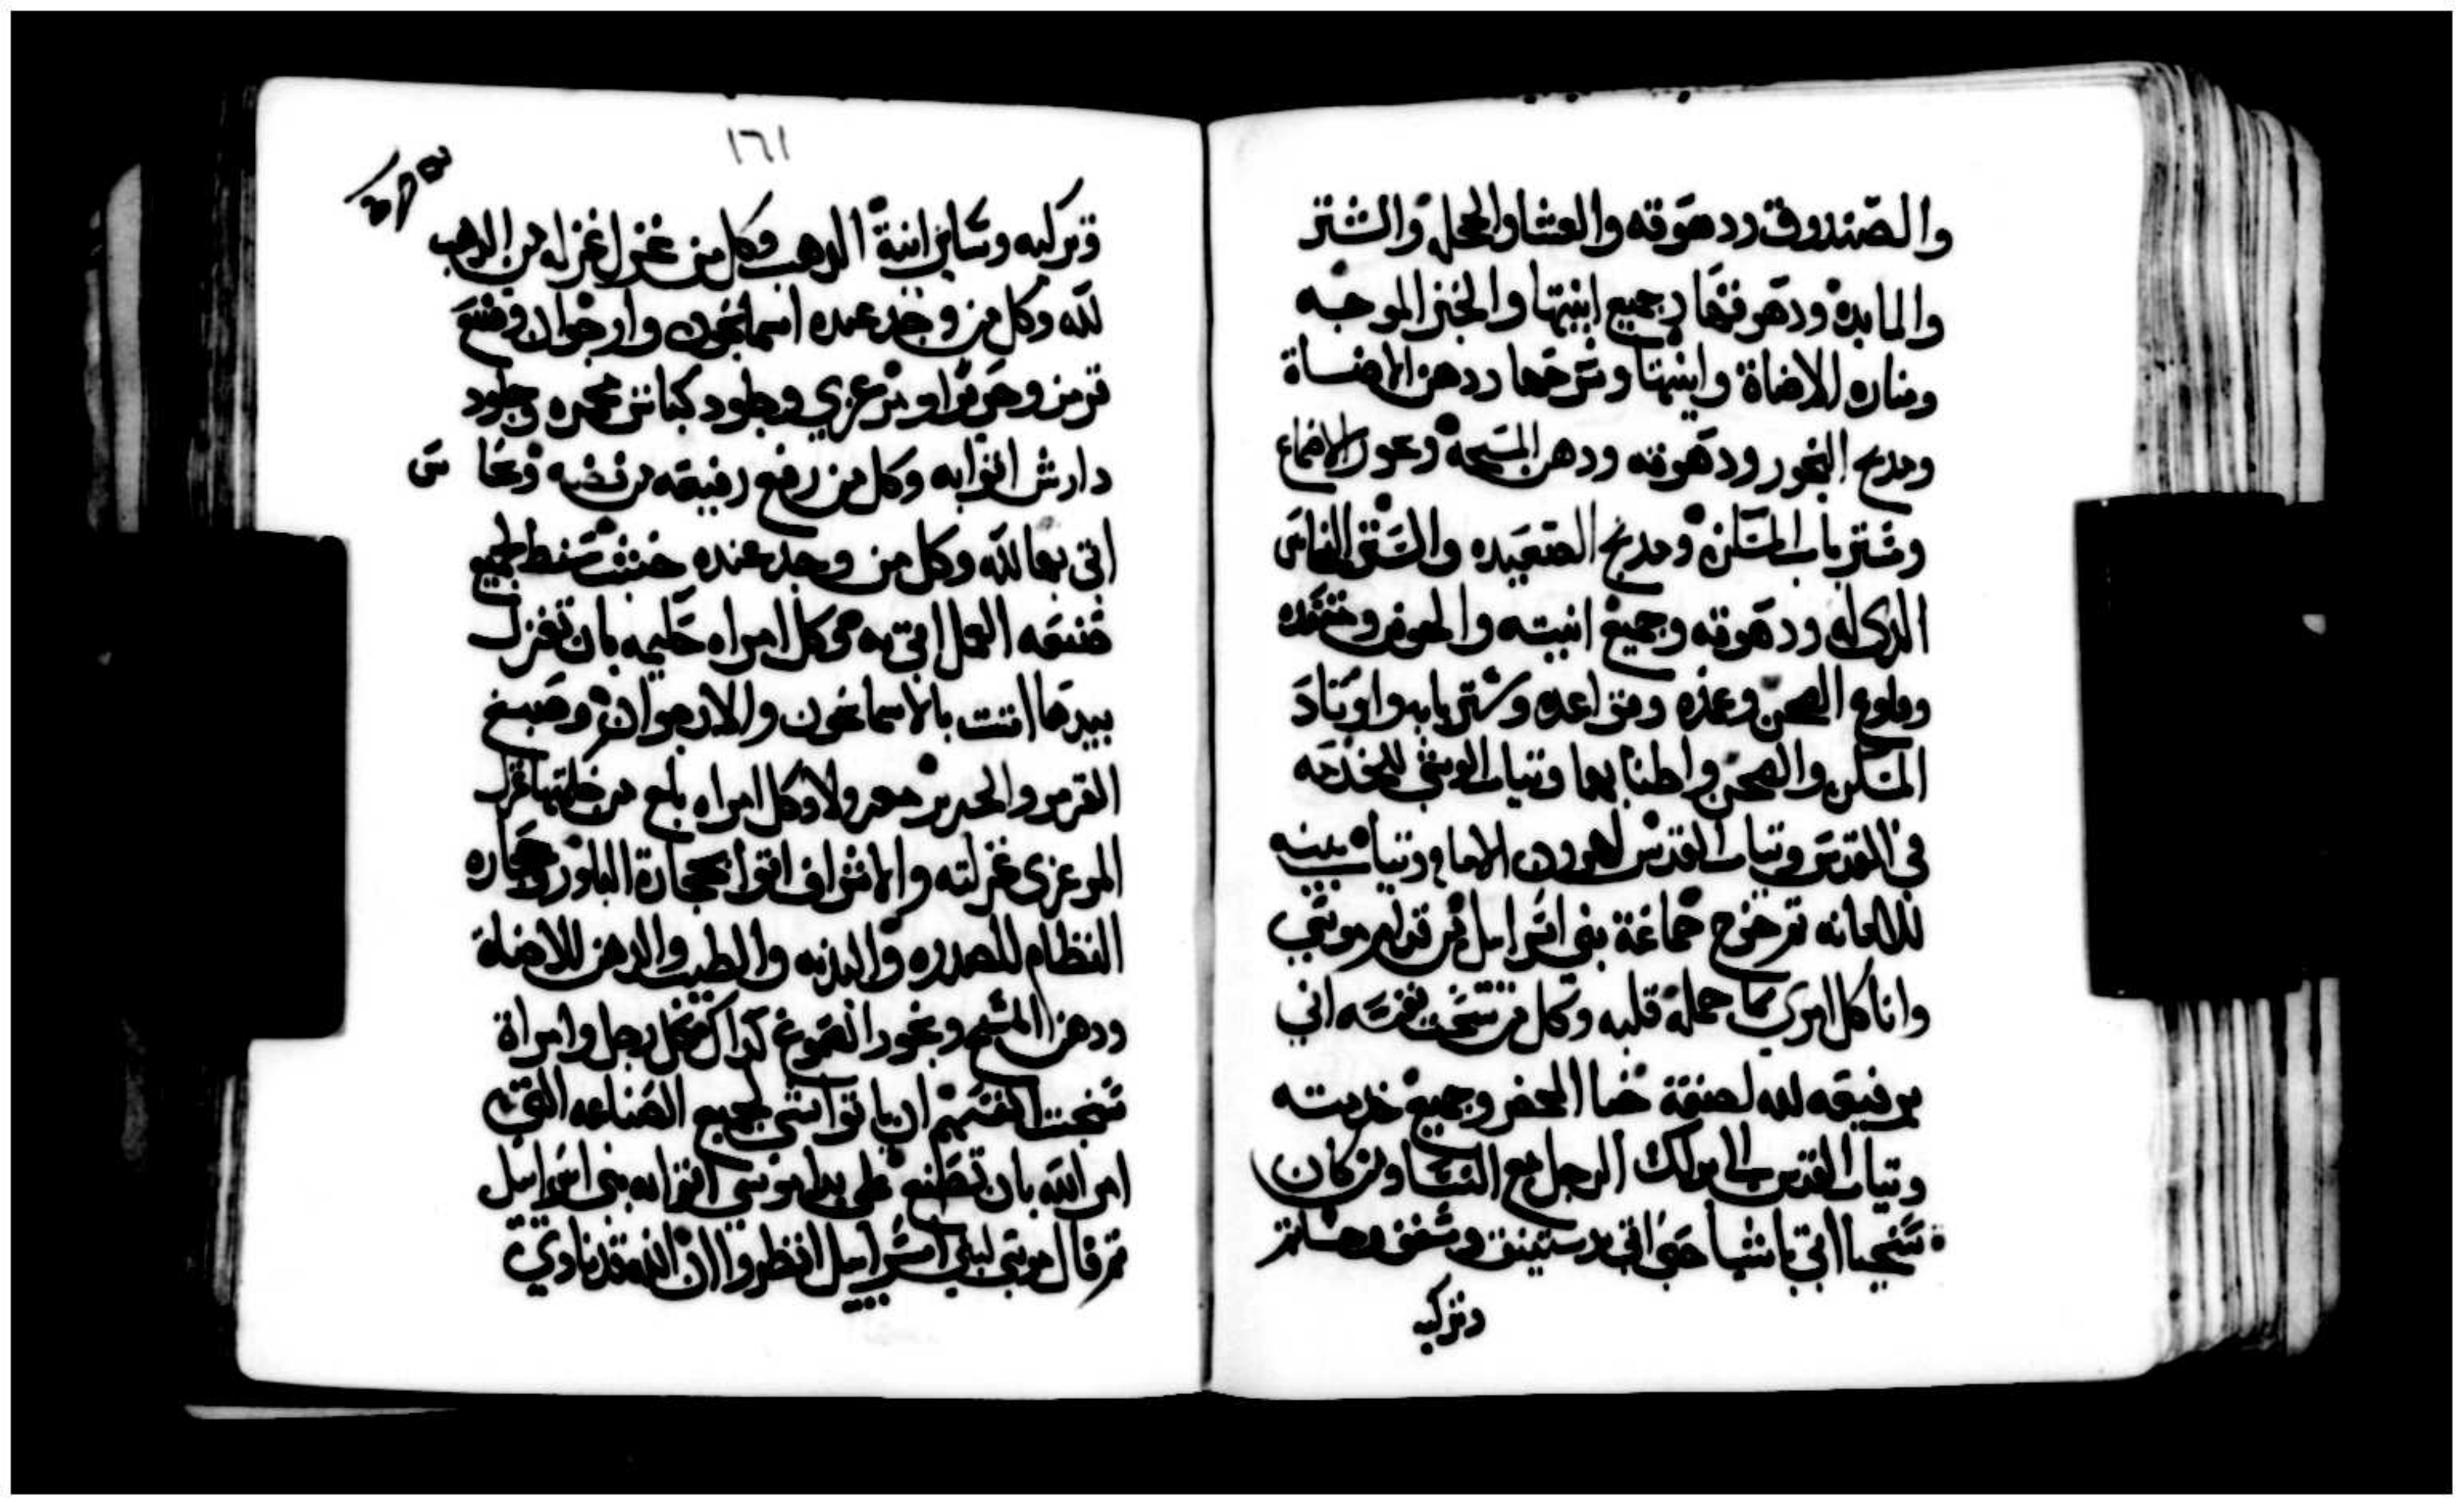 والصندوق ودهوقه والغشا والمحلل والستر
والمايده ودهوقها وجميع انيتها والخبز الموجه
ومناره للاضاة وانيتها وسرجها ودهن الاضاة
ومدبح البخور ودهوقه ودهن المسحة وعود الاضماع
وستر باب المسكن ومدبح الصعيده والستر النحاس
الذى له ودهوقه وجميع انيته والحوض ومقعده
وقلوع الصحن وعمده وقواعده وستر بابه واوتاد
المسكن والصحن واطنابهما وتياب الوشي للخدمه
في القدس وتياب القدس لهرون الامام وتياب بنيه
للامانه تم خرج جماعة بني اسراىل من قدام موسي
واتا كل امرئ بما حمله قلبه وكل من سخت نفسه اتي
برفيعه لله لصنعة خبا المحضر وجميع خدمته
وتياب القدس الي بولك الرجل مع النسا ومن كان
سخيا اتي باشيا حتي اتي بدستينق وشنف وخاتم
وتركيه
١٦١
وتركيه وساير انية الدهب وكل من عزل عزله من الدهب
لله وكل من وجد عنده اسمانجون وارجوان وصبغ
قرمز وحريرا ومرعزي وجلود كباش محمره وجلود
دارش اتوا به وكل من رفع رفيعه من فضه ونحاس
اتي بها لله وكل من وجد عنده خشب سنط لجميع
صنيعه العمل اتي به وكل امراه حكيمه بان تغزل
بيدها اتت بالاسمانجون والارجوان وصبغ
القرمز والحرير معزولا وكل امراه بلغ من حكمتها غزل
المرعزى غزلته والاشراف اتوا بحجارة البلور وحجاره
النظام للصدره والبدنه والطيب والدهن للاضاة
ودهن المسح وبخور الصموغ كداك كل رجل وامراة
سخت انفسهم ان ياتوا بشي لجميع الصناعه التي
امر الله بان تصنع على يد موسي اتوا به بني اسراىيل
تم قال موسي لبني اسراىيل انظروا ان الله قد نادي